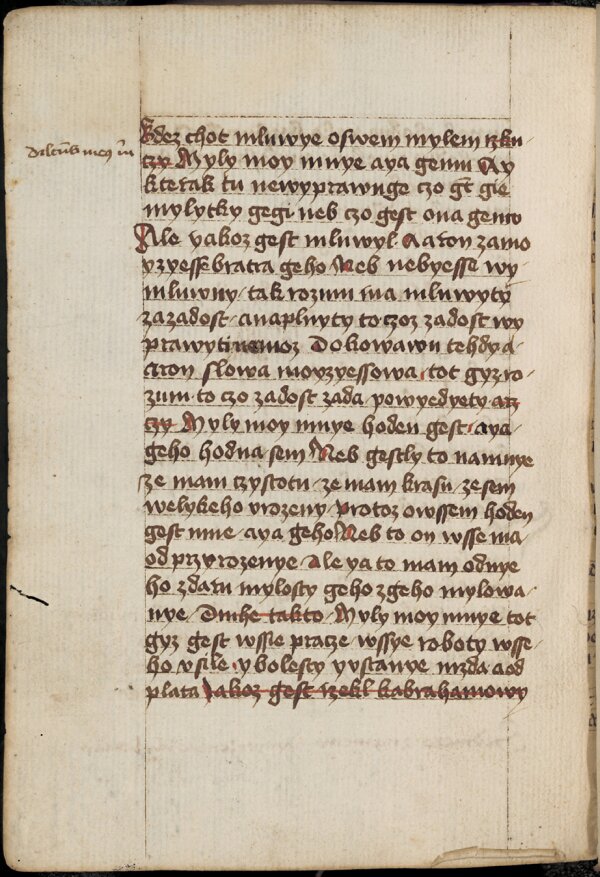 Kdez chot mluwye oswem mylem rzku
czy Myly moy mnye aya gemu Ay
kterak tu newyprawuge czo gt gie
mylytky gegi neb czo gest ona gemo
Ale yakoz gest mluwyl Aaron zamo
yzyesse bratra geho Neb nebyesse wy
mluwny tak rozum ma mluwyty
zazadost anaplnyty to czoz zadost wy
prawyti nemoz Dokowawu tehdy a
aron slowa moyzyessowa tot gyz ro
zum to czo zadost zada powyedyety arz
czy Myly moy mnye hoden gest aya
geho hodna sem Neb gestly to namnye
ze mam czystotu ze mam krasu ze sem
welykeho vrozeny protoz owssem hoden
gest mne aya geho Neb to on wsse ma
od przyrozenye Ale ya to mam odnye
ho zdaru mylosty geho zgeho mylowa
nye Duihe takto Myly moy mnye tot
gyz gest wssie pracze wssye roboty wsse
ho vsile y bolesty y vstanye mzda a od
plata Jakoz gest rzekl kabrahamowy